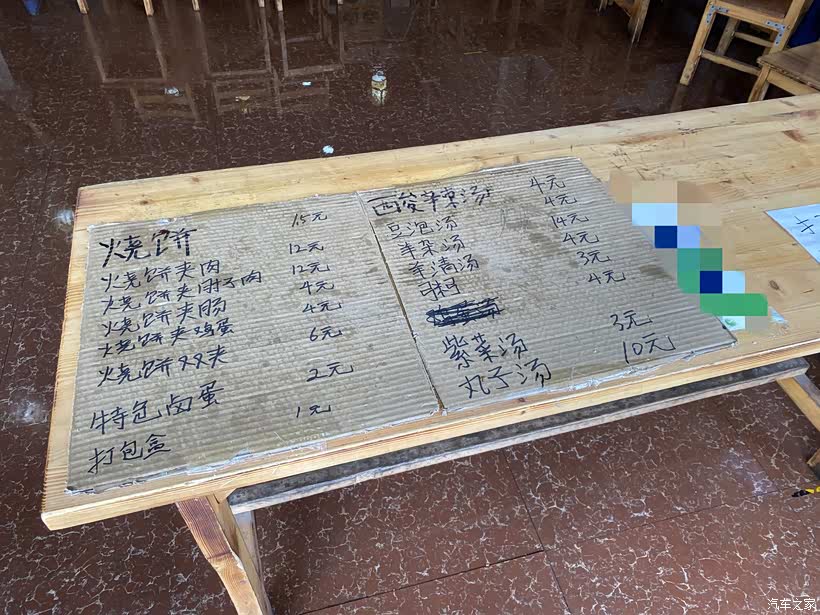 烧饼 1.5元
烧饼夹肉 12元
烧饼夹肘子肉 12元
烧饼夹肠 4元
烧饼夹鸡蛋 4元
烧饼双夹 6元
特色卤蛋 2元
打包盒 1元
酸辣汤 4元
豆泡汤 4元
羊杂汤 14元
羊清汤 4元
3元
4元
紫菜汤 3元
丸子汤 10元
汽车之家